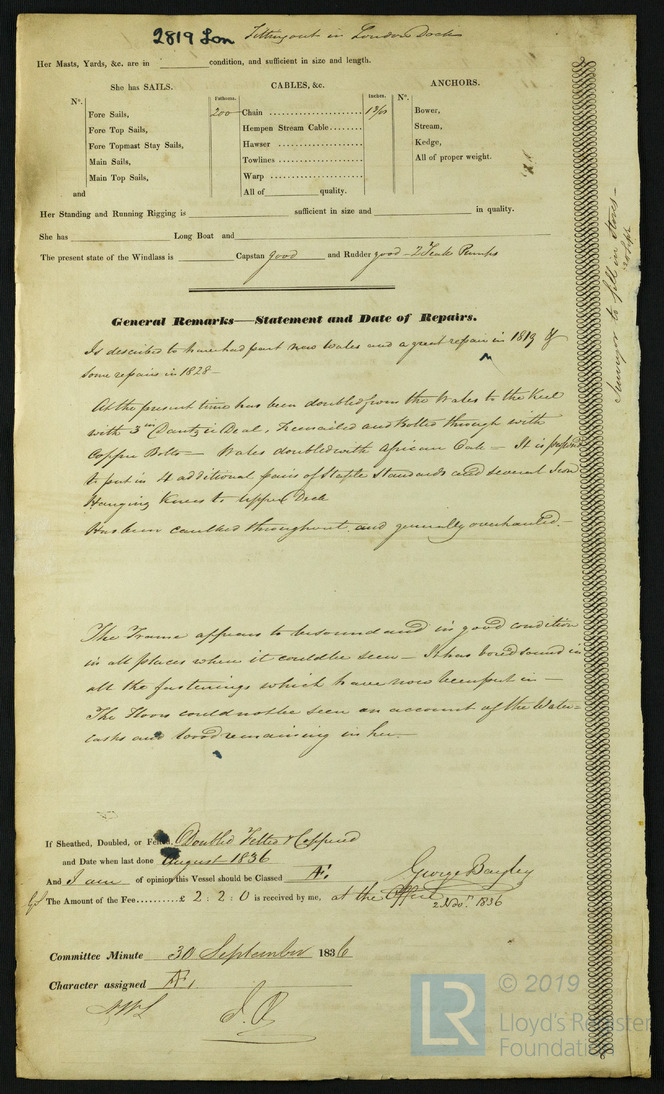 2819 Lon Fitting out in London Dock
Her Masts, Yards, &c. are in condition, and sufficient in size and length.
She has SAILS.
N°.
Fore Sails,
Fore Top Sails,
Fore Topmast Stay Sails,
Main Sails,
Main Top Sails,
and
CABLES, &c.
Fathoms. Inches.
200 Chain
Hempen Stream Cable
Hawser
Towlines
Warp
All of quality.
ANCHORS.
N°.
Bower,
Stream,
Kedge,
All of proper weight.
Her Standing and Running Rigging is sufficient in size and in quality.
She has Long Boat and
The present state of the Windlass is Capstan good and Rudder good – 2 Teak Pumps
Surveyor to fill in Stores –
General Remarks—Statement and Date of Repairs.
Is described to have had part new Wales and a great repair in 1819 &
Some repairs in 1828 –
At the present time has been doubled from the Wales to the Keel
with 3 in Dantzic Deal, Treenailed and Bolted through with
Copper Bolts – Wales doubled with African Oak – It is
to put in 4 additional pairs of Staple Standards and several Iron
Hanging Knees to Upper Deck
Has been caulked throughout and generally overhauled. –
The Frame appears to be sound and in good condition
in all places where it could be seen – It has bored sound in
all the fastenings which have now been put in –
The Floors could not be seen on account of the Water-
casks and wood remaining in her. –
If Sheathed, Doubled, or Felted, Doubled Felted & Coppered
and Date when last done August 1836
And I am of opinion this Vessel should be Classed Æ1 George Bayley
The Amount of the Fee £ 2 : 2 : 0 is received by me, at the Office
2 Nov. 1836
Committee Minute 30 September 1836
Character assigned Æ1.
© 2019
LR
Lloyd's Register
Foundation